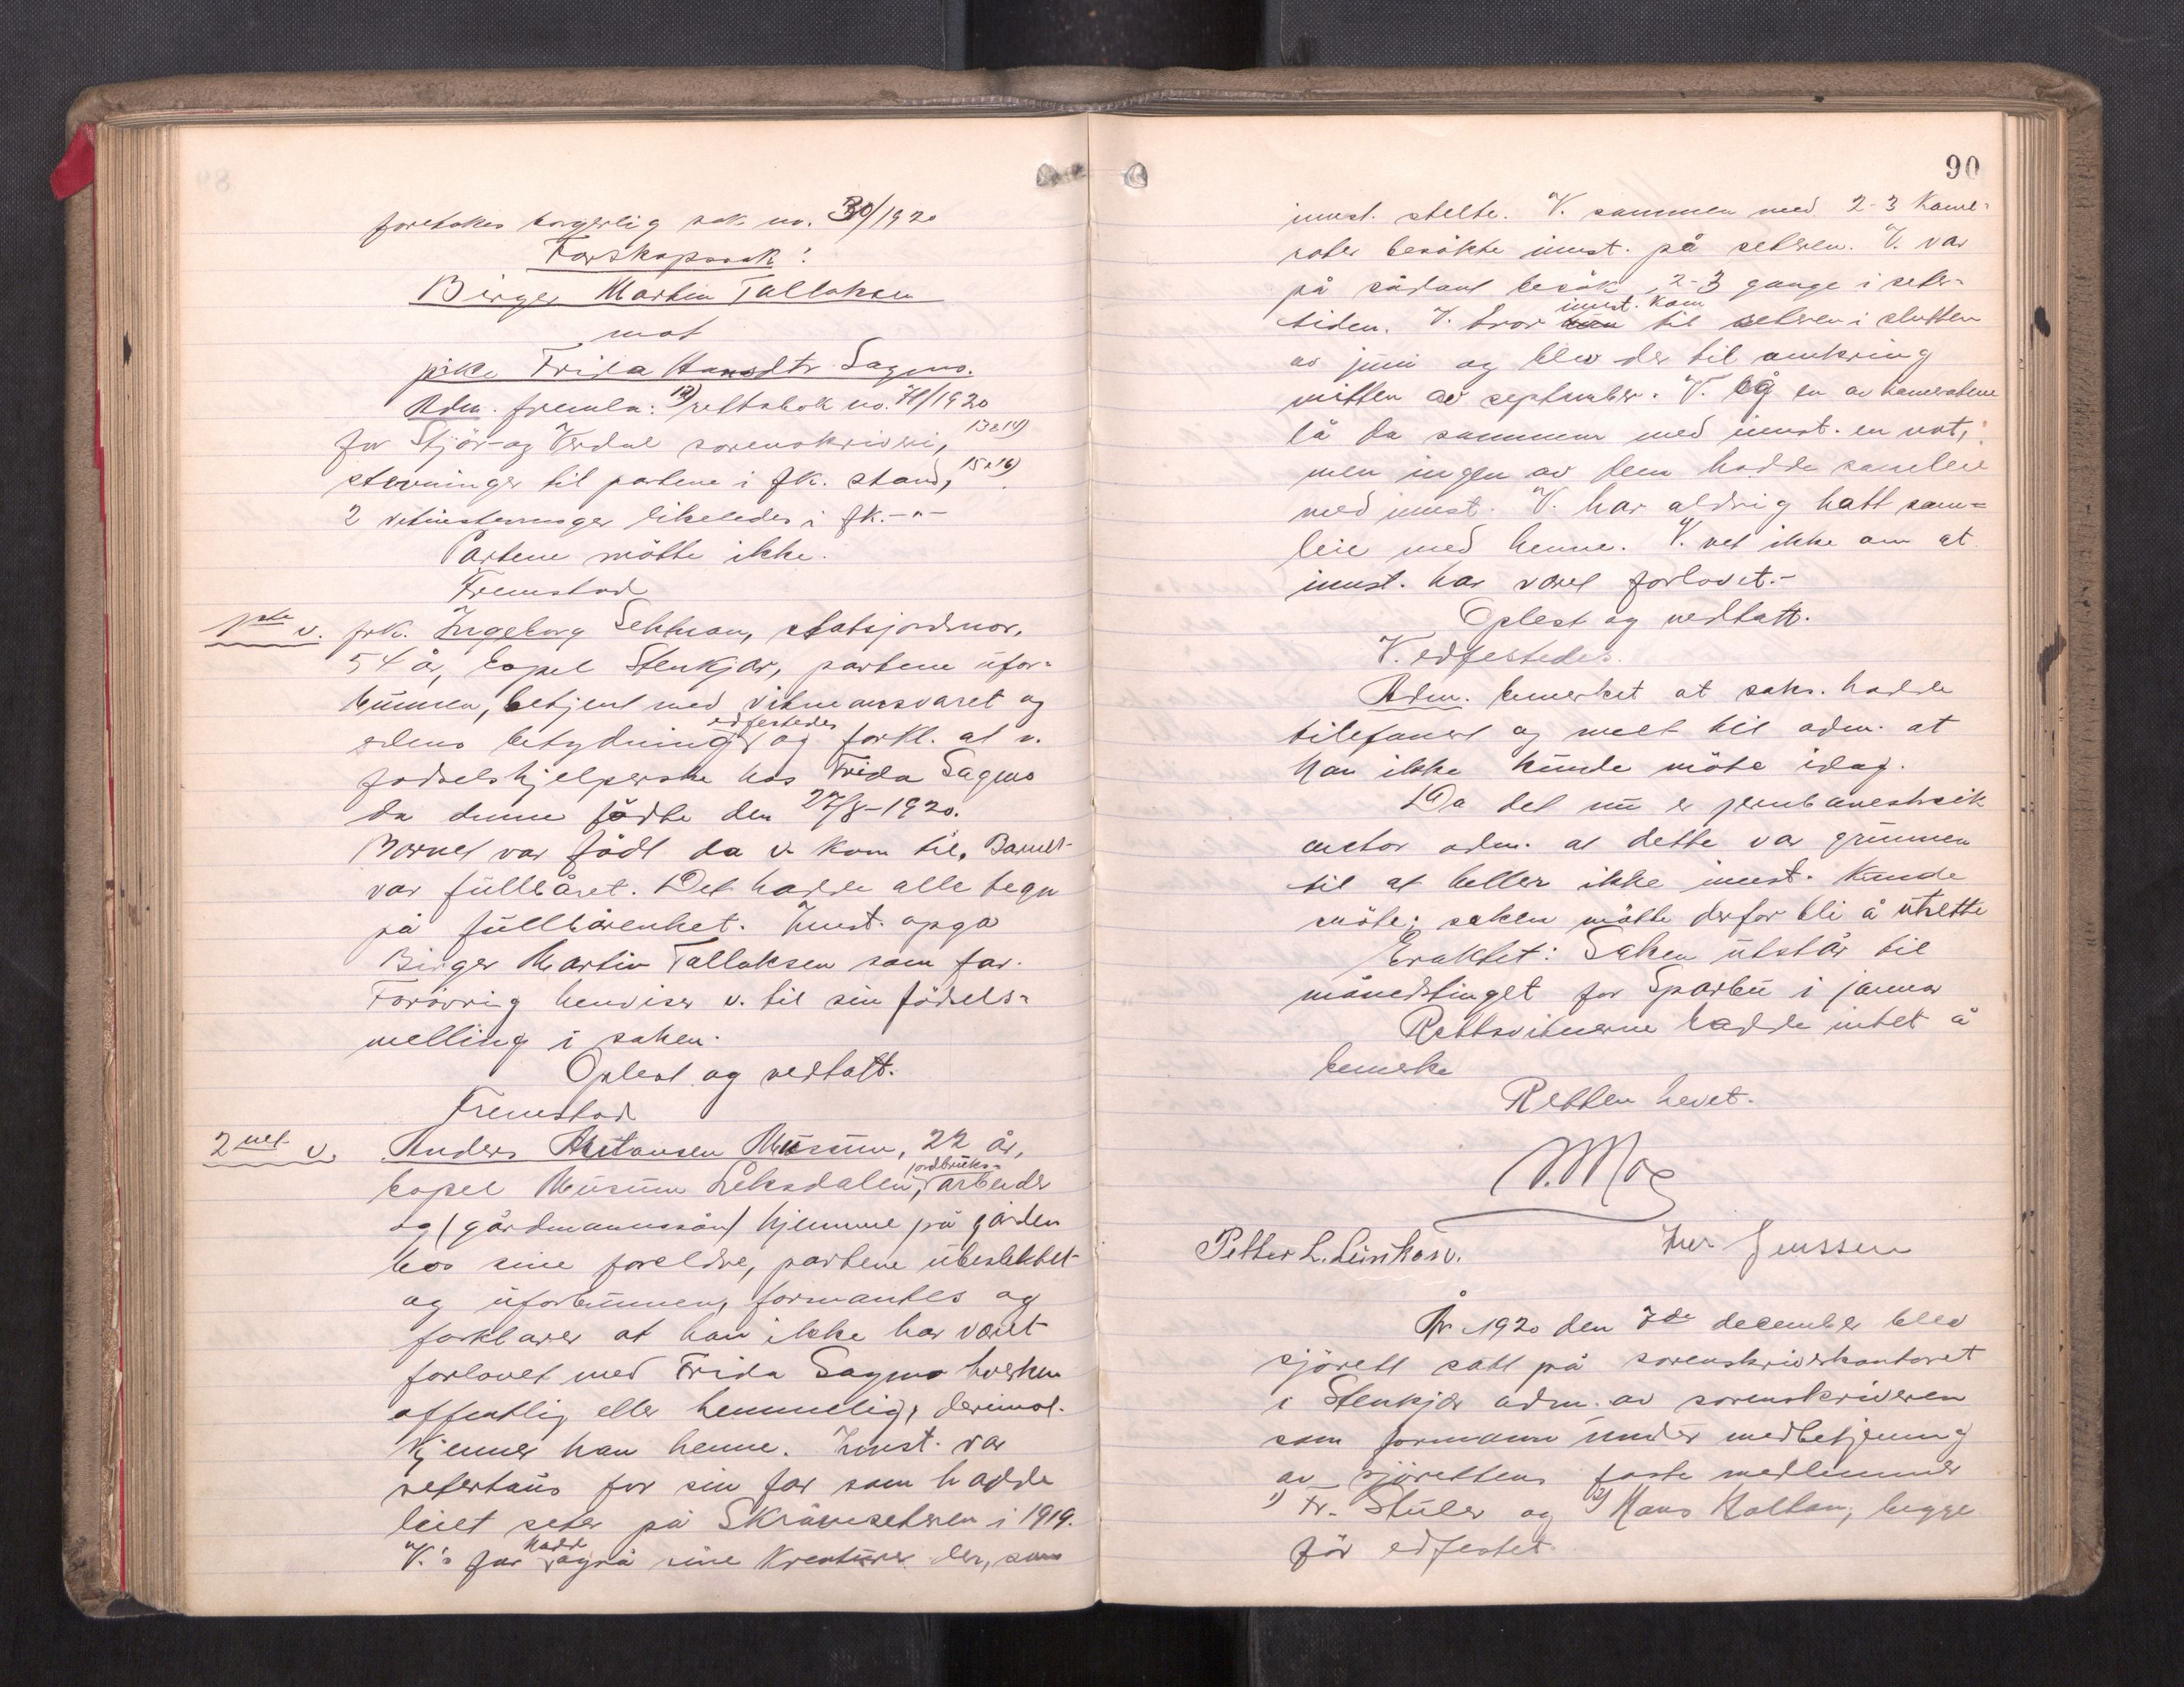 foretokes borgerlig sak no. 30/1920
Farskapssak:
Birger Martin Tallaksen
mot
pike Frida Hansdtr Sagmo.
Adm. fremla: 12) rettsbok no. 71/1920
for Stjör- og Verdal sorenskriveri, 13 & 14)
stevninger til partene i fk. stand, 15 & 16)
2 vitnestevninger likeledes i fk. -"-
Partene mötte ikke.
Fremstod
1ste v. frk. Ingeborg Sehman, statsjordmor,
54 år, bopel Stenkjær, partene ufor-
bunnen, betjent med vitneansvaret og
edens betydning, edfestedes og forkl. at v.
födselshjelperske hos Frida Sagmo
da denne födte den 27/8-1920.
Barnet var födt da v. kom til. Barnet
var fullbåret. Det hadde alle tegn
på fullbårenhet. Innst. opga
Birger Martin Tallaksen som far.
Forövrig henviser v. til sin födsels-
melling i saken.
Oplest og vedtatt.
Fremstod
2net v. Anders Antonsen Musum, 22 år,
bopel Musum Leksdalen, jordbruks-
arbeider
og (gårdmannssön) hjemme på gården
hos sine foreldre, partene ubeslektet
og uforbunnen, formantes og
forklarer at han ikke har været
forlovet med Frida Sagmo hverken
offentlig eller hemmelig, derimot
kjenner han henne. Innst. var
setertaus for sin far som hadde
leiet seter på Skråmseteren i 1919.
V.'s far hadde også sine kreaturer der, som
90
innst. stelte. V. sammen med 2-3 kame-
rater besökte innst. på seteren. V. var
på sådant besök 2-3 gange i seter-
tiden. V. tror innst. kom til seteren i slutten
av juni og blev der til omkring
mitten av september. V. og en av kameratene
lå da sammen med innst. en nat,
men ingen av dem hadde samleie
med innst. V. har aldrig hatt sam-
leie med henne. V. vet ikke om at
innst. har været forlovet.-
Oplest og vedtatt.
V. edfestedes.
Adm. bemerket at saks. hadde
telefonert og melt til adm. at
han ikke kunde möte idag.
Da det nu er jernbanestreik
antor adm. at dette var grunnen
til at heller ikke innst. kunde
möte; saken måtte derfor bli å utsette
Eraktet: Saken utstår til
månedstinget for Sparbu i januar
Rettsvitnerne hadde intet å
bemerke
Retten hevet.
V. Moe
Petter L. Lunhosv. Iver Jenssen
År 1920 den 7de december blev
sjörett satt på sorenskriverkontoret
i Stenkjær adm. av sorenskriveren
som formann under medbetjening
av sjörettens faste medlemmer
1) Fr. Stuler og 2) Hans Kolban, begge
för edfestet.